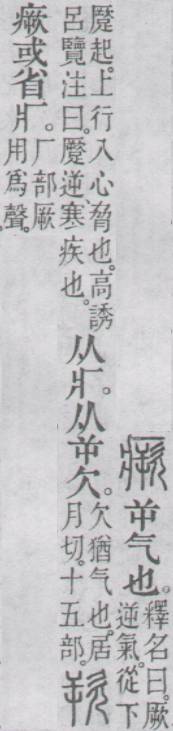 瘚 屰气也。
釋名曰。厥
逆氣從下
蹷起。上行入心脅也。高誘
呂覽注曰。蹷逆寒疾也。
从疒。从屰欠。
欠猶气也。居
月切。十五部。
欮
瘚或省疒。
厂部厥
用爲聲。